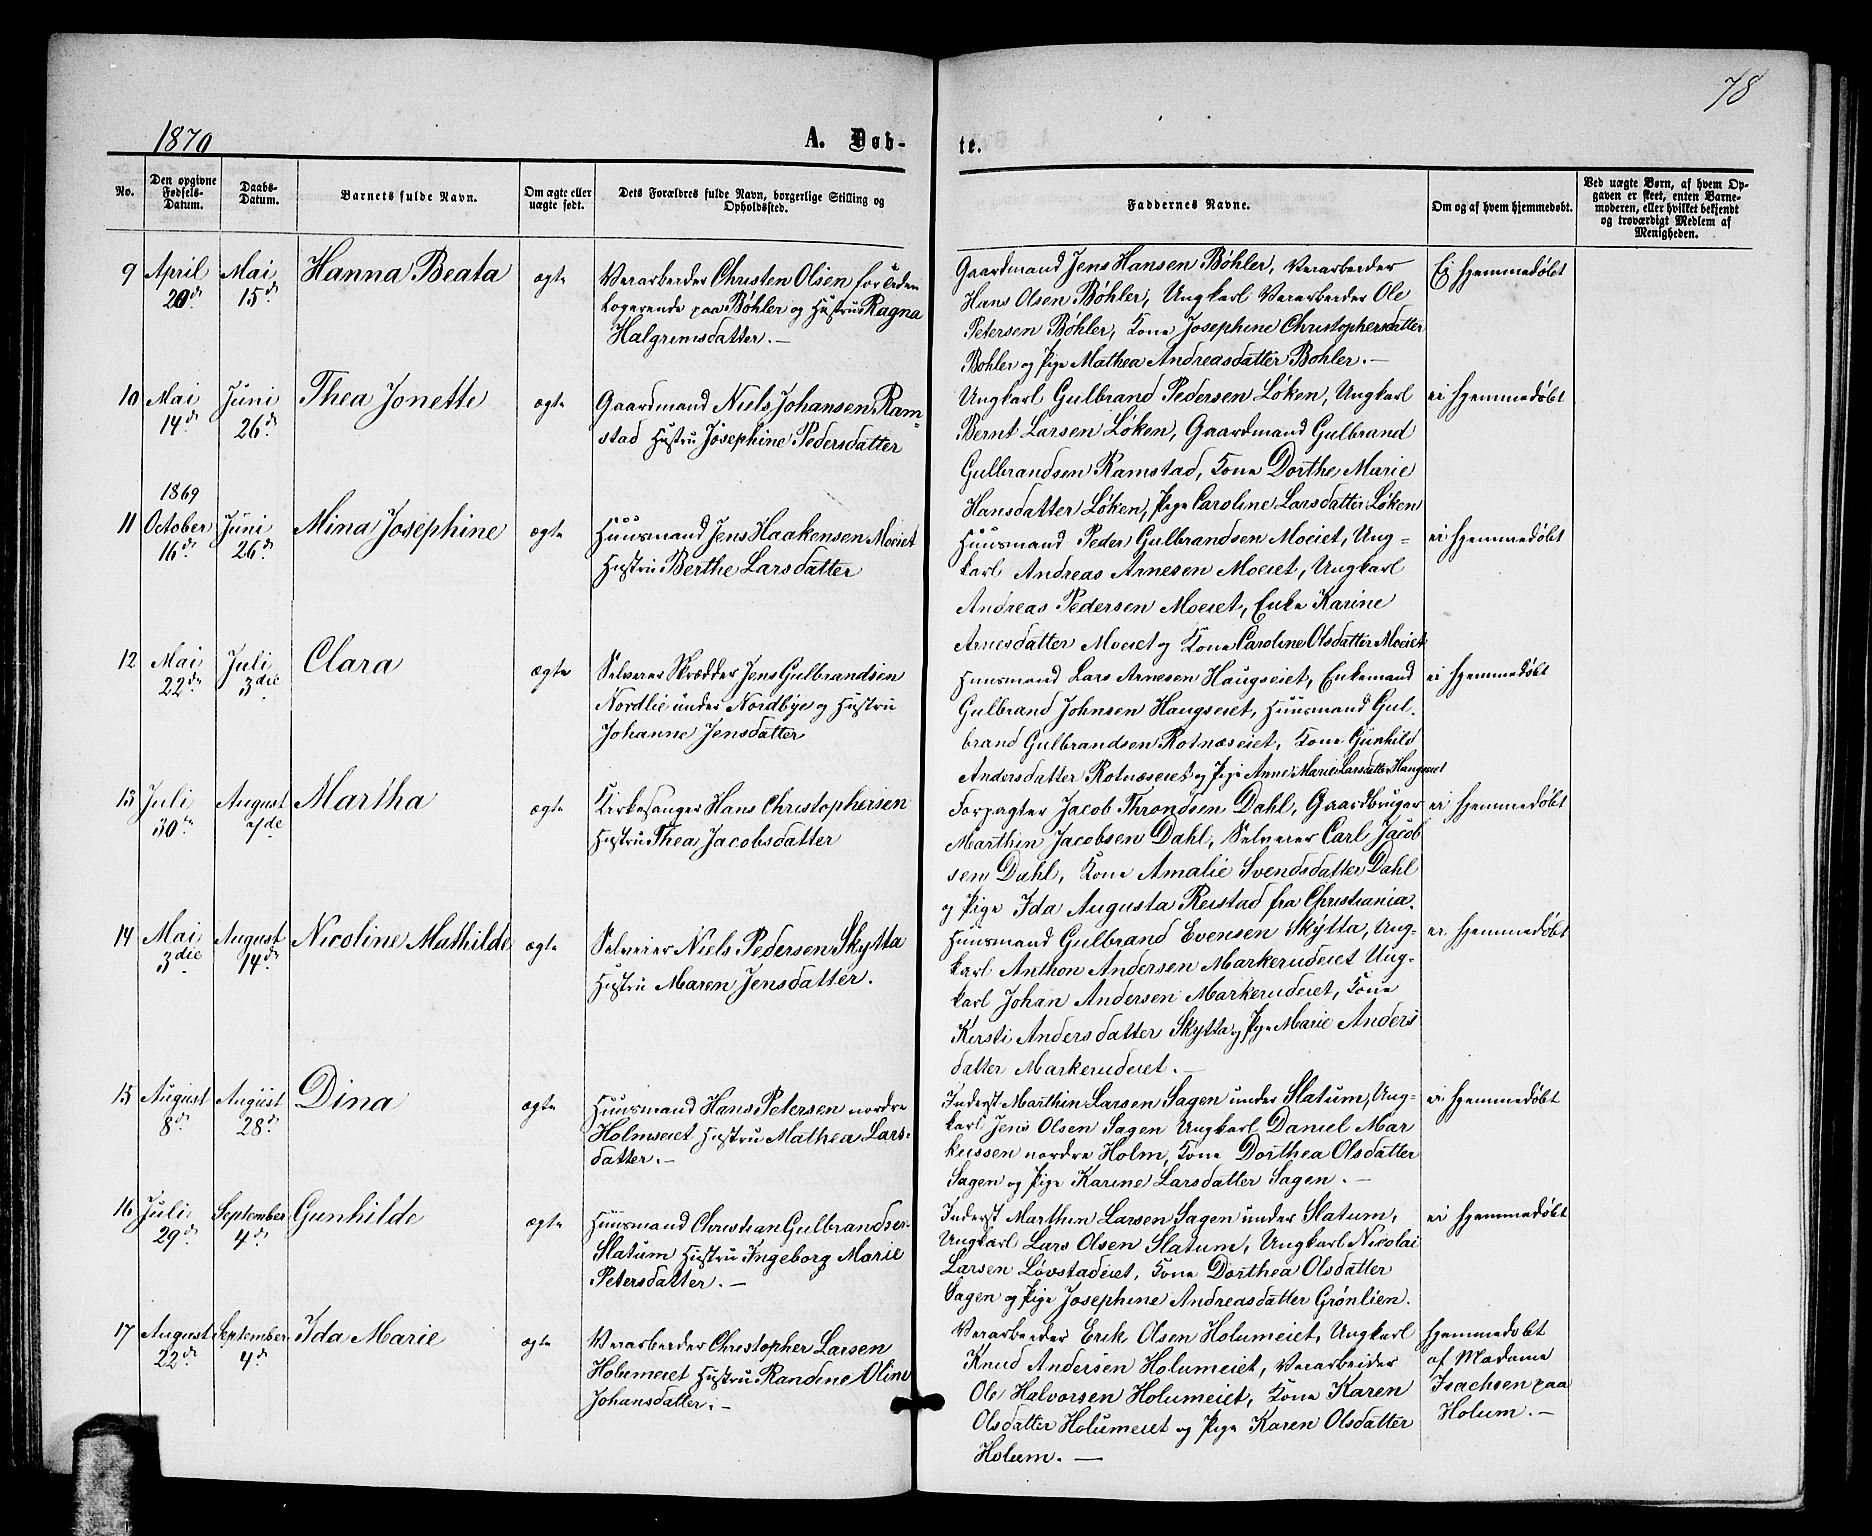 78
1870
A. Døb-
te.
No.
Den opgivne Fødsels-Datum.
Daabs-Datum.
Barnets fulde Navn.
Om ægte eller uægte født.
Dets Forældres fulde Navn, borgerlige Stilling og Opholdssted.
Faddernes Navne.
Om og af hvem hjemmedøbt.
Ved uægte Børn, af hvem Op-
gaven er skeet, enten Barne-
moderen, eller hvilket bekjendt
og troværdigt Medlem af
Menigheden.
9 April 20de Mai 15de Hanna Beata ægte
Veiarbeider Christen Olsen for tiden
logerende paa Bøhler og Hustru Ragna
Halgrimsdatter.—
Gaardmand Jens Hansen Bøhler, Veiarbeider
Hans Olsen Bøhler, Ungkarl Veiarbeider Ole
Petersen Bøhler, Kone Josephine Christophersdatter
Bøhler og Pige Mathea Andreasdatter Bøhler.—
Ei hjemmedøbt
10 Mai 14de Juni 26de Thea Jonette ægte
Gaardmand Niels Johansen Ram-
stad Hustru Josephine Pedersdatter
Ungkarl Gulbrand Pedersen Løken, Ungkarl
Bernt Larsen Løken, Gaardmand Gulbrand
Gulbrandsen Ramstad, Kone Dorthe Marie
Hansdatter Løken, Pige Caroline Larsdatter Løken
ei hjemmedøbt
11 1869 October 16de Juni 26de Mina Josephine ægte
Huusmand Jens Haakensen Moeiet
Hustru Berthe Larsdatter
Huusmand Peder Gulbrandsen Moeiet, Ung-
karl Andreas Arnesen Moeiet, Ungkarl
Andreas Pedersen Moeiet, Enke Karine
Arnesdatter Moeiet og Kone Caroline Olsdatter Moeiet
ei hjemmedøbt
12 Mai 22de Juli 3die Clara ægte
Selveier Skrædder Jens Gulbrandsen
Nordlie under Nordbye og Hustru
Johanne Jensdatter
Huusmand Lars Arnesen Haugseiet, Enkemand
Gulbrand Johnsen Haugseiet, Huusmand Gul-
brand Gulbrandsen Rotnæseiet, Kone Gunhild
Andersdatter Rotnæseiet og Pige Anne Marie Larsdatter Haugseiet
ei hjemmedøbt
13 Juli 30te August 7de Martha ægte
Kirkesanger Hans Christophersen
Hustru Thea Jacobsdatter
Forpagter Jacob Throndsen Dahl, Gaardbruger
Marthin Jacobsen Dahl, Selveier Carl Jacob
sen Dahl, Kone Amalie Svendsdatter Dahl
og Pige Ida Augusta Reistad fra Christiania.
ei hjemmedøbt
14 Mai 3die August 14de Nicoline Mathilde ægte
Selveier Niels Pedersen Skytta
Hustru Maren Jensdatter.
Huusmand Gulbrand Evensen Skytta, Ung-
karl Anthon Andersen Markerudeiet Ung-
karl Johan Andersen Markerudeiet, Kone
Kersti Andersdatter Skytta og Pige Marie Anders
datter Markerudeiet.—
ei hjemmedøbt
15 August 8de August 28de Dina ægte
Huusmand Hans Petersen nordre
Holmseiet Hustru Mathea Lars-
datter.—
Inderst Marthin Larsen Sagen under Slatum, Ung-
karl Jens Olsen Sagen Ungkarl Daniel Mar
kussen nordre Holm, Kone Dorthea Olsdatter
Sagen og Pige Karine Larsdatter Sagen.—
ei hjemmedøbt
16 Juli 29de September 4de Gunhilde ægte
Huusmand Christian Gulbrandsen
Slatum Hustru Ingeborg Marie
Petersdatter.—
Inderst Marthin Larsen Sagen under Slatum,
Ungkarl Lars Olsen Slatum, Ungkarl Nicolai
Larsen Løvstadeiet, Kone Dorthea Olsdatter
Sagen og Pige Josephine Andreasdatter Grønlien.
ei hjemmedøbt
17 August 22de September 4de Ida Marie ægte
Veiarbeider Christopher Larsen
Holumeiet Hustru Randine Oline
Johansdatter.—
Veiarbeider Erik Olsen Holumeiet, Ungkarl
Knud Andersen Holumeiet, Veiarbeider
Ole Halvorsen Holumeiet, Kone Karen
Olsdatter Holumeiet og Pige Karen Olsdatter
Holum.—
hjemmedøbt
af Madame
Isachsen paa
Holum.—